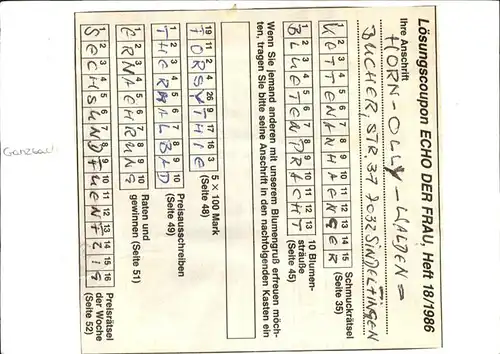 Lösungscoupon ECHO DER FRAU, Heft 18/1986
Ihre Anschrift
HORN-OLLY-WALDEN=
BUCHER, STR. 37 7032 SINDELFINGEN
1 2 3 4 5 6 7 8 9 10 11 12 13 14 15
KETTENANHAENGER
Schmuckrätsel
(Seite 35)
1 2 3 4 5 6 7 8 9 10 11 12 13
BLUETENPRACHT
10 Blumen-
sträuße
(Seite 45)
Wenn Sie jemand anderen mit unserem Blumengruß erfreuen möch-
ten, tragen Sie bitte seine Anschrift in den nachfolgenden Kasten ein
19 11 2 4 26 9 17 16 3
FORSYTHIE
5 × 100 Mark
(Seite 48)
1 2 3 4 5 6 7 8 9 10
THERMALBAD
Preisausschreiben
(Seite 49)
1 2 3 4 5 6 7 8 9 10
ERNAEHRUNG
Raten und
gewinnen (Seite 51)
1 2 3 4 5 6 7 8 9 10 11 12 13 14 15 16
SECHSUNDFUENFZIG
Preisrätsel
der Woche
(Seite 52)